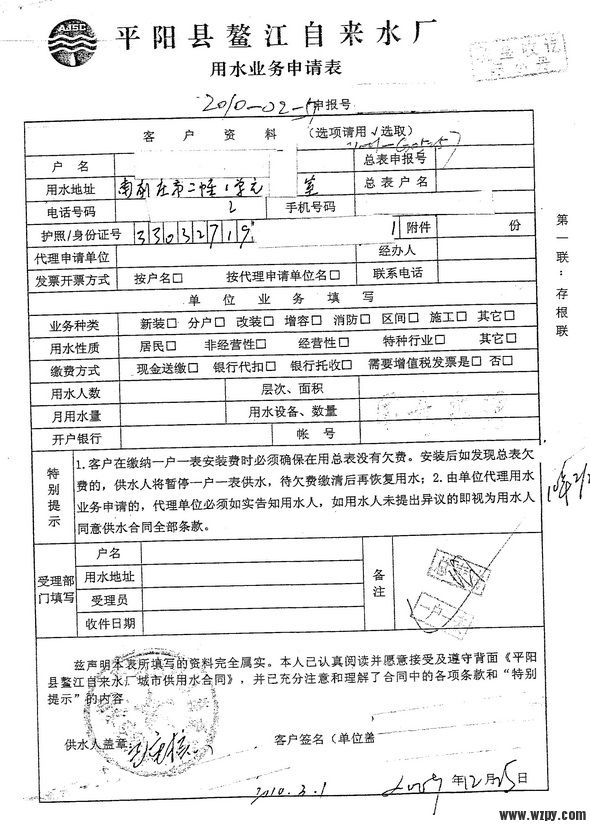 AJSC
平阳县鳌江自来水厂
用水业务申请表
2010-02- 申报号
客户资料 (选项请用√选取)
户名 总表申报号
用水地址 二幢1单元 室 总表户名
电话号码 2 手机号码
护照/身份证号 33032719 1 附件 份
代理申请单位 经办人
发票开票方式 按户名□ 按代理申请单位名□ 联系电话
单位业务填写
业务种类 新装□ 分户□ 改装□ 增容□ 消防□ 区间□ 施工□ 其它□
用水性质 居民□ 非经营性□ 经营性□ 特种行业□ 其它□
缴费方式 现金送缴□ 银行代扣□ 银行托收□ 需要增值税发票是□ 否□
用水人数 层次、面积
月用水量 用水设备、数量
开户银行 帐号
特别提示
1.客户在缴纳一户一表安装费时必须确保在用总表没有欠费。安装后如发现总表欠
费的，供水人将暂停一户一表供水，待欠费缴清后再恢复用水；2.由单位代理用水
业务申请的，代理单位必须如实告知用水人，如用水人未提出异议的即视为用水人
同意供水合同全部条款。
受理部门填写
户名
用水地址
受理员
收件日期
备注
一户一
第一联：存根联
兹声明本表所填写的资料完全属实。本人已认真阅读并愿意接受及遵守背面《平阳
县鳌江自来水厂城市供用水合同》，并已充分注意和理解了合同中的各项条款和“特别
提示”的内容。
供水人盖章： 客户签名（单位盖
2010.3.1 年12月25日
www.wzpy.com